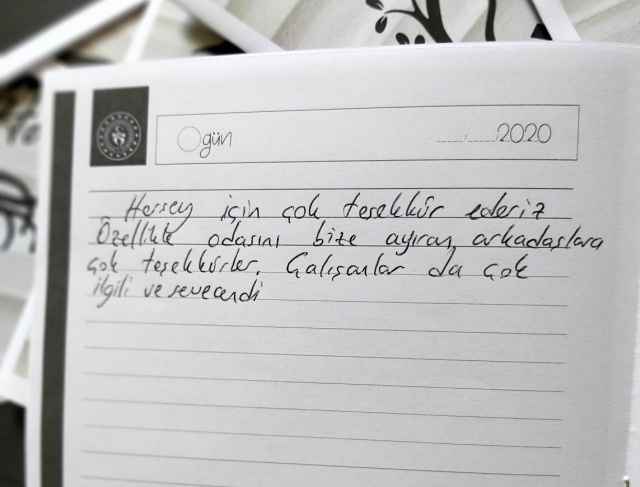 Ogün
...../...../2020
Herşey için çok teşekkür ederiz
Özellikle odasını bize ayıran, arkadaşlara
çok teşekkürler. Çalışanlar da çok
ilgili ve sevecendi